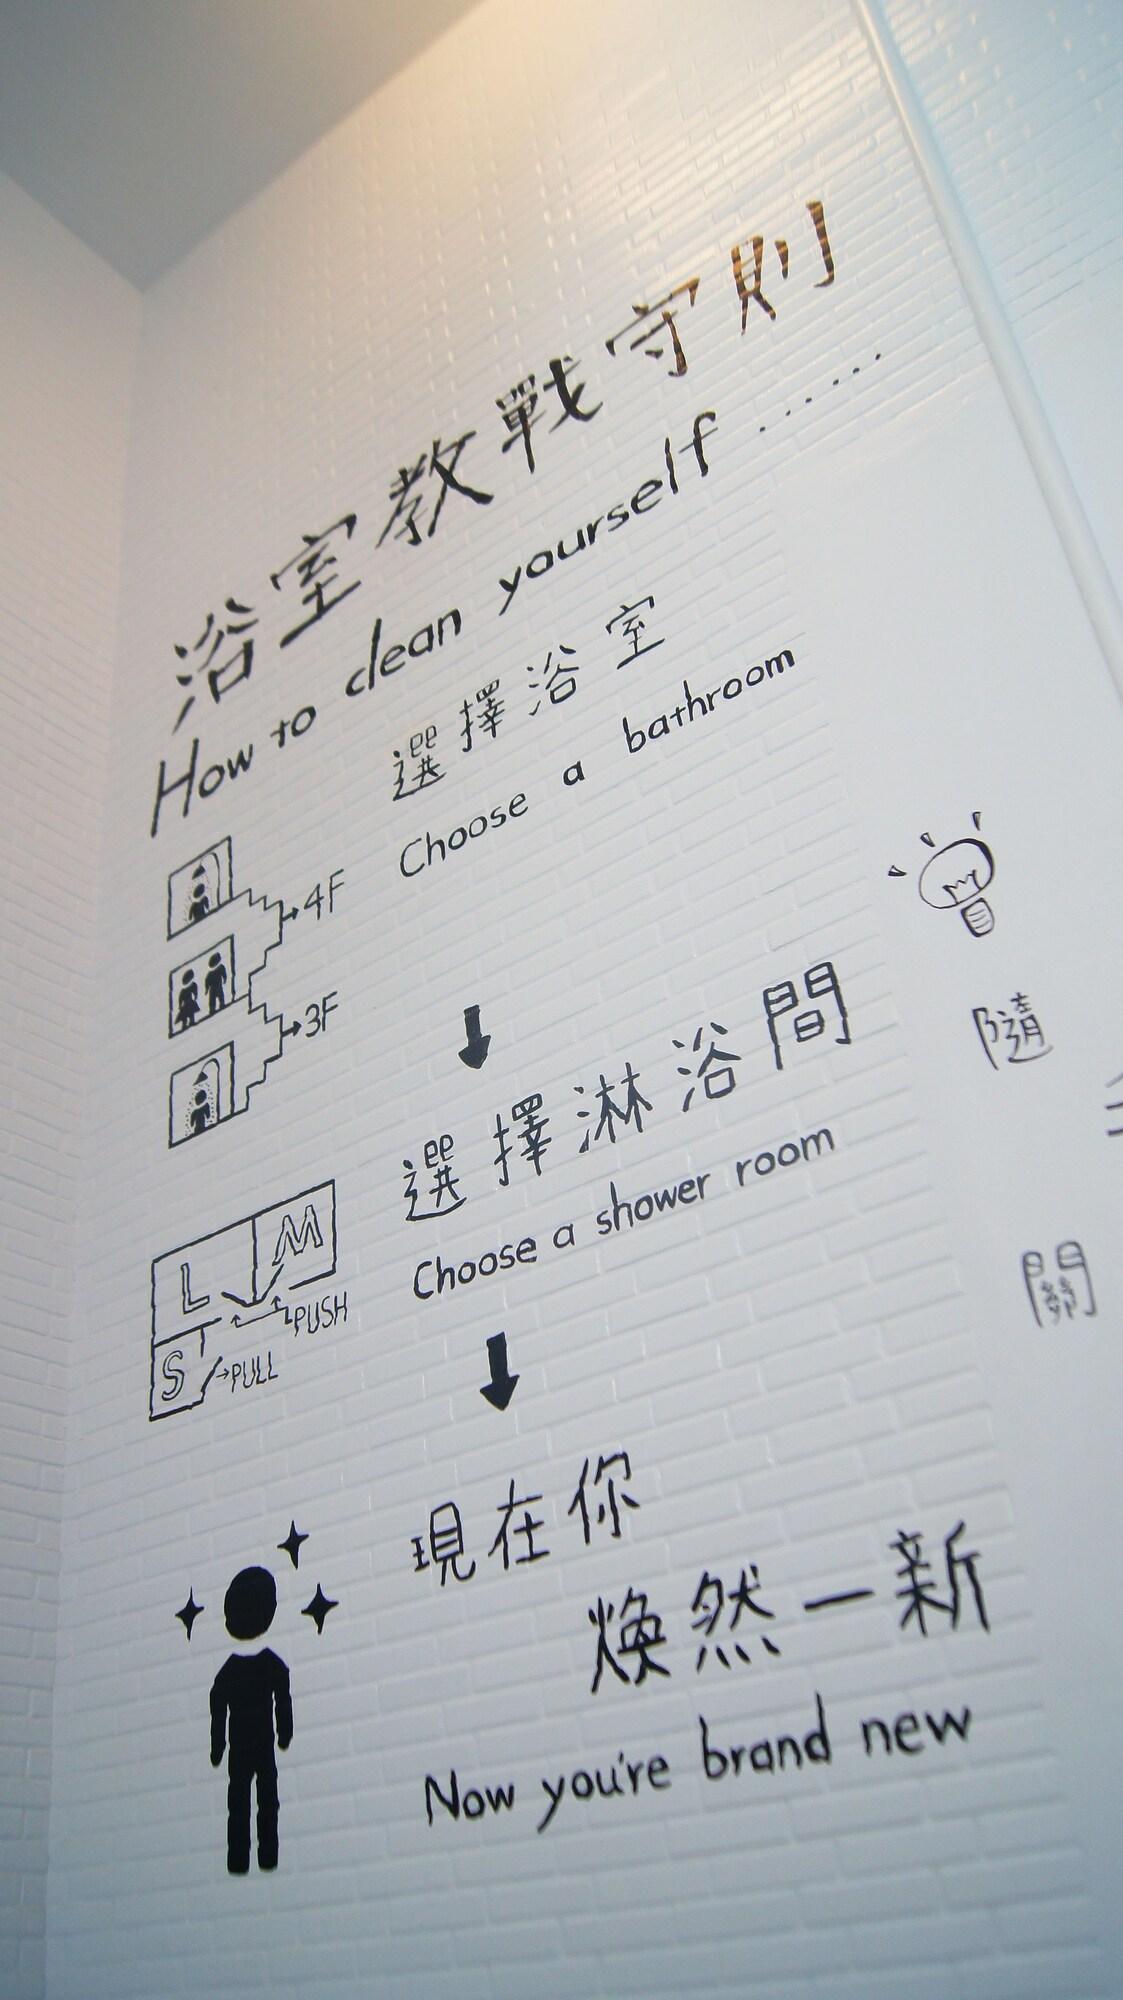 浴室教戰守則
How to clean yourself......
選擇浴室
Choose a bathroom
4F
3F
選擇淋浴間
Choose a shower room
L M
PUSH
S
PULL
現在你
煥然一新
Now you're brand new
隨
關